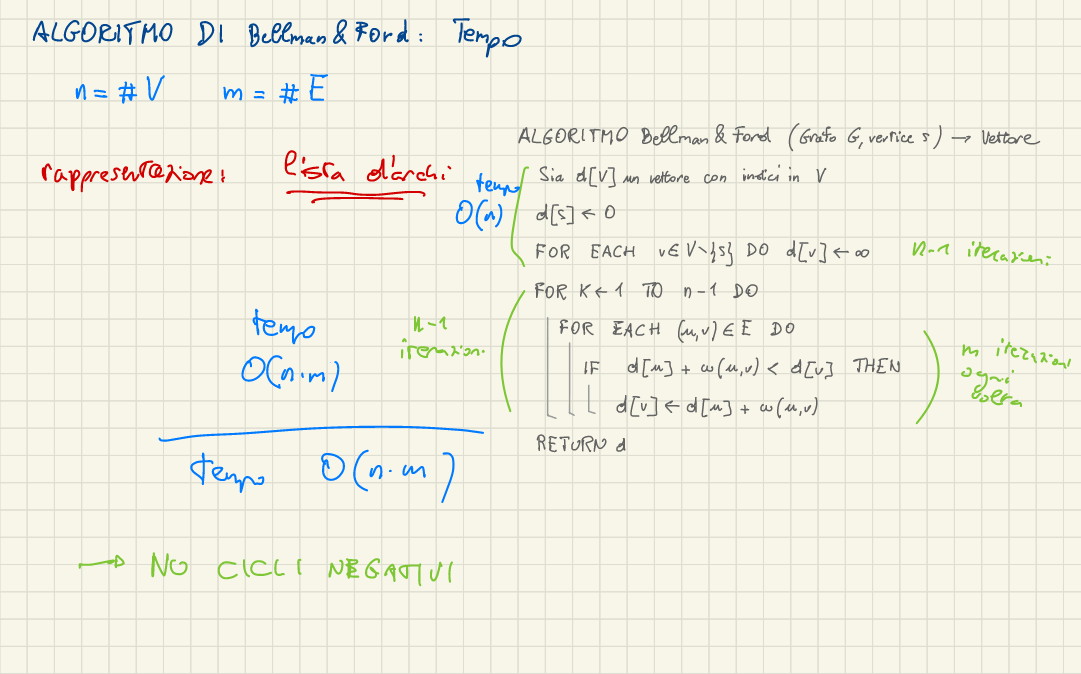 ALGORITMO DI Bellman & Ford: Tempo
n = # V m = # E
rappresentazione: lista d'archi
ALGORITMO Bellman & Ford (Grafo G, vertice s) → Vettore
tempo O(n)
Sia d[V] un vettore con indici in V
d[s] ← 0
FOR EACH v ∈ V \ {s} DO d[v] ← ∞ n-1 iterazioni
FOR K ← 1 TO n-1 DO
FOR EACH (u,v) ∈ E DO
IF d[u] + w(u,v) < d[v] THEN
d[v] ← d[u] + w(u,v)
RETURN d
n-1
iterazioni
m iterazioni
ogni
volta
tempo
O(n·m)
tempo O(n·m)
→ NO CICLI NEGATIVI